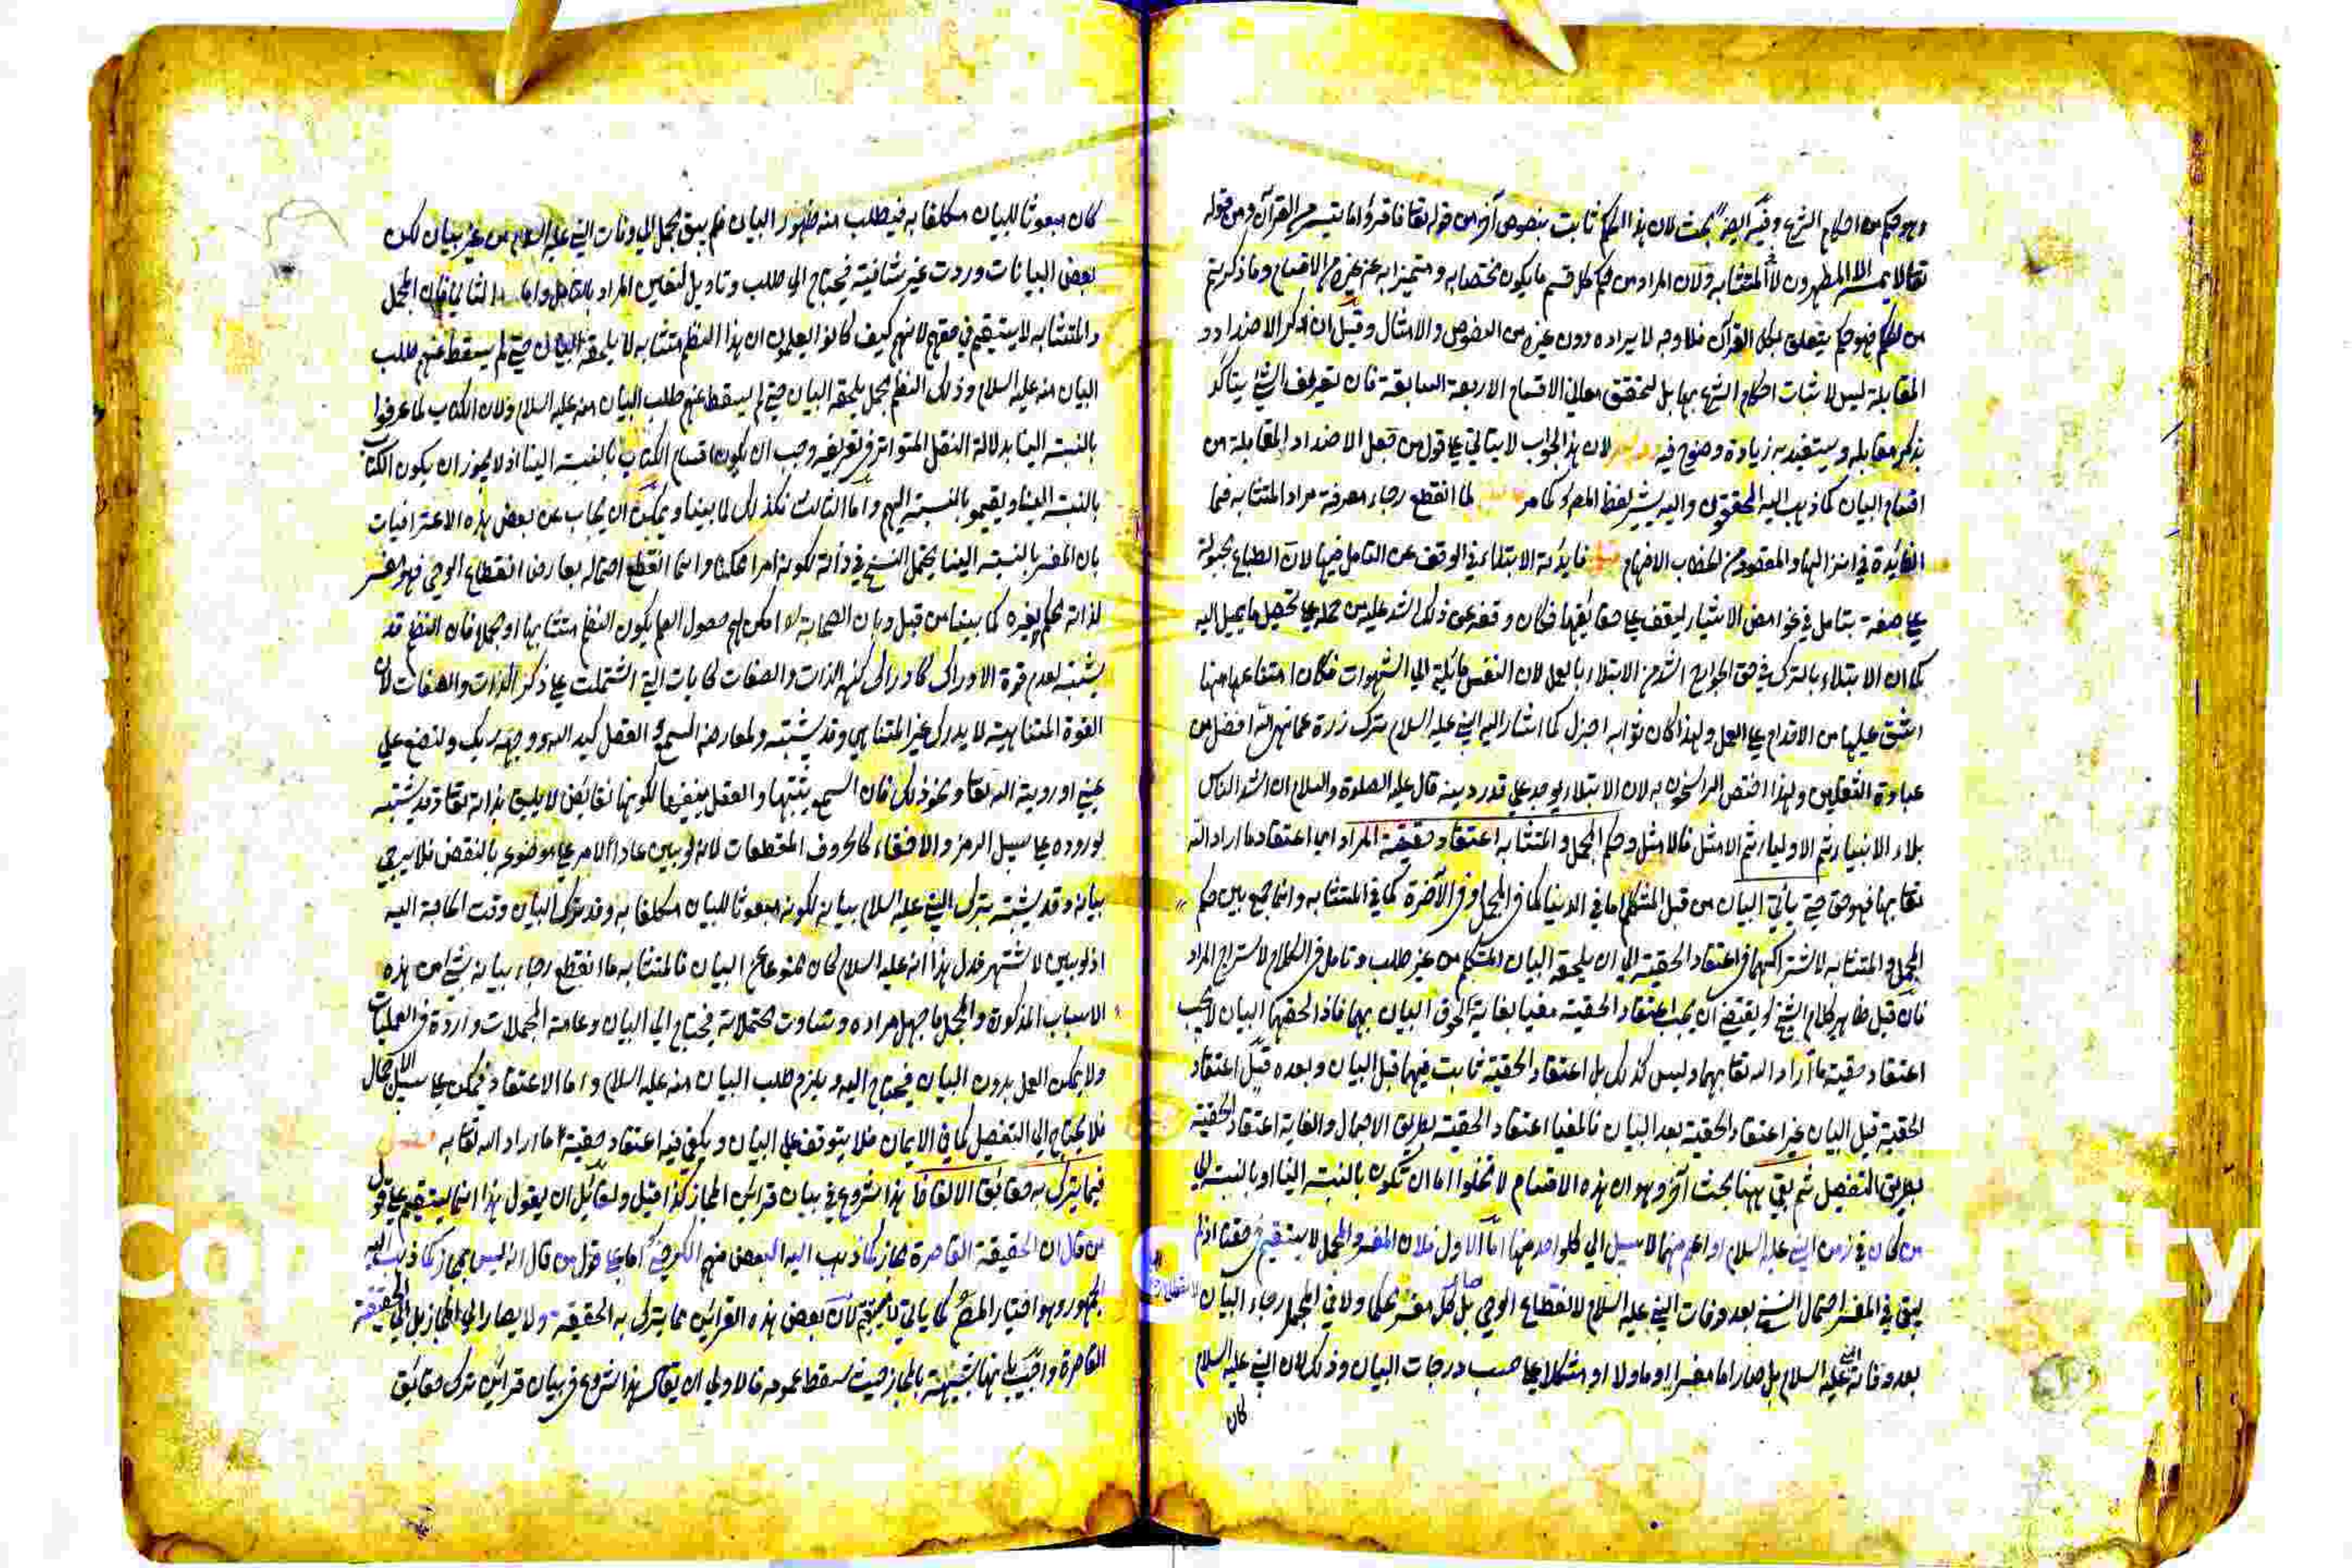 وهو حكم من احكام الشرع وفيه ايضا بحث لان هذا الحكم ثابت بنصوص آخر من قوله تعا فاقرؤا ما تيسر من القرآن ومن قوله
تعا لا يمسه الا المطهرون لا المتشابه ولان المراد من حكم كل قسم ما يكون مختصا به ومتميزا به عن غيره من الاقسام وما ذكرتم
من الحكم فهو حكم يتعلق بكل القرآن فلا وجه لايراده دون غيره من القصص والامثال وقيل ان ذكر الاضداد و
المقابلة ليس لاثبات احكام الشرع بها بل لتحقق معاني الاقسام الاربعة السابقة فان تعريف الشئ يتأكد
بذكر مقابله ويستفيد به زيادة وضوح فيه لان هذا الجواب لا يتاتي علي قول من جعل الاضداد المقابلة من
اقسام البيان كما ذهب اليه المحققون واليه يشير لفظ المص كما مر لما انقطع رجاء معرفة مراد المتشابه فما
الفايدة في انزالها والمقصود من الخطاب الافهام فايدته الابتلاء في الوقف عن التامل فيها لان الطباع مجبولة
علي صفة يتامل في غوامض الاشياء ليقف علي حقايقها فكان وقفه عن ذلك اشد عليه من حمله علي تحصيل ما يميل اليه
كما ان الابتلاء بالترك في حق الجوارح اشد من الابتلاء بالعمل لان النفس مائلة الي الشهوات فكان امتناعها منها
اشق عليها من الاقدام علي العمل ولهذا كان ثوابه اجزل كما اشار اليه النبي عليه السلام بترك ذرة مما نهى الله افضل من
عبادة الثقلين ولهذا اختص الراسخون به لان الابتلاء يوجد علي قدر دينه قال عليه الصلوة والسلام ان اشد الناس
بلاء الانبياء ثم الاولياء ثم الامثل فالامثل وحكم المجمل والمتشابه اعتقاد حقيقة المراد اي اعتقاد ما اراد الله
تعا بها فهو حق حتي ياتي البيان من قبل المتكلم اما في الدنيا كما في المجمل او في الآخرة كما في المتشابه وانما جمع بين حكم
المجمل والمتشابه لاشتراكهما في اعتقاد الحقية الي ان يلحقه البيان المتكلم من غير طلب وتامل في الكلام لاستخراج المراد
فان قيل ظاهر كلام الشيخ يقتضي ان يجب اعتقاد الحقية مغيا بغاية لحوق البيان بهما فاذا لحقهما البيان لا يجب
اعتقاد حقية ما اراد الله تعا بهما وليس كذلك بل اعتقاد الحقية ثابت فيهما قبل البيان وبعده قيل اعتقاد
الحقية قبل البيان غير اعتقاد الحقية بعد البيان فالمغيا اعتقاد الحقية بطريق الاجمال والغاية اعتقاد الحقية
بطريق التفصيل ثم بقي ههنا بحث آخر وهو ان هذه الاقسام لا تخلوا اما ان تكون بالنسبة الينا او بالنسبة الي
من كان في زمن النبي عليه السلام او اعم منهما لا سبيل الي كل واحد منها اما الاول فلان المفسر والمجمل لا يستقيم في حقنا اذ لم
يبق في المفسر احتمال النسخ بعد وفات النبي عليه السلام لانقطاع الوحي بل كل مفسر صار محكما ولا في المجمل رجاء البيان
بعد وفاة النبي عليه السلام بل صار اما مفسرا او ماولا او مشكلا علي حسب درجات البيان وذلك لان النبي عليه السلام
كان
كان مبعوثا للبيان مكلفا به فيطلب منه ظهور البيان فلم يبق مجمل الي وفات النبي عليه السلام من غير بيان لكن
بعض البيانات وردت غير شافية فيحتاج الي طلب وتاويل لتعيين المراد بالتامل واما الثاني فلان المجمل
والمتشابه لا يستقيم في حقهم لانهم كيف كانوا يعلمون ان هذا النظم متشابه لا يلحقه البيان حتي لم يسقط عنهم طلب
البيان منه عليه السلام وذلك النظم مجمل يلحقه البيان حتي لم يسقط عنهم طلب البيان منه عليه السلام ولان الكتاب لما عرفوا
بالنسبة الينا بدلالة النقل المتواتر في تعريفه وجب ان يكون اقسام الكتاب بالنسبة الينا اذ لا يجوز ان يكون الكتاب
بالنسبة الينا وتقسيمه بالنسبة اليهم واما الثالث فكذلك لما بينا ويمكن ان يجاب عن بعض هذه الاعتراضات
بان المفسر بالنسبة الينا يحتمل النسخ في ذاته لكونه امرا ممكنا وانما انقطع احتماله بعارض انقطاع الوحي فهو مفسر
لذاته محكم لغيره كما بينا من قبل وبان الصحابة لا امكن لهم حصول العلم بكون النظم متشابها او مجملا فان النظم قد
يشتبه لعدم قوة الادراك كادراك كنه الذات والصفات كايات التي اشتملت علي ذكر الذات والصفات لان
القوة المتناهية لا يدرك غير المتناهي وقد يشتبه لمعارضة السمع العقل كيد الله ووجه ربك ولتصنع علي
عيني او روية الله تعا ونحو ذلك فان السمع يثبتها والعقل ينفيها لكونها نقايض لا يليق بذاته تعا وقد يشتبه
لوروده علي سبيل الرمز والاخفاء كالحروف المقطعات لانه لو بين عاد الامر علي موضوعه بالنقض فلا يرجي
بيانه وقد يشتبه بترك النبي عليه السلام بيانه لكونه مبعوثا للبيان مكلفا به وقد ترك البيان وقت الحاجة اليه
اذ لو بين لاشتهر فدل هذا انه عليه السلام كان ممنوعا عن البيان فالمتشابه ما انقطع رجاء بيانه شئ من هذه
الاسباب المذكورة والمجمل ما جهل مراده وتساوت محتملاته فيحتاج الي البيان وعامة المجملات واردة في العمليات
ولا يمكن العمل بدون البيان فيحتاج اليه ويلزم طلب البيان منه عليه السلام واما الاعتقاد فيمكن علي سبيل الاجمال
فلا يحتاج الي التفصيل كما في الايمان فلا يتوقف علي البيان ويكفي فيه اعتقاد حقية ما اراد الله تعا به
فيما يترك به حقائق الالفاظ هذا شروع في بيان قرائن المجاز كذا قيل ولقائل ان يقول هذا انما يستقيم علي قول
من قال ان الحقيقة القاصرة مجاز كما ذهب اليه البعض منهم الكرخي اما علي قول من قال انه ليس بمجاز كما ذهب اليه
الجمهور وهو اختيار المص كما ياتي لان بعض هذه القرائن مما يترك به الحقيقة ولا يصار الي المجاز بل الي الحقيقة
القاصرة واجيب بانها شبيهة بالمجاز حيث سقط عمومه فالاولي ان يقال هذا شروع في بيان قرائن ترك حقائق